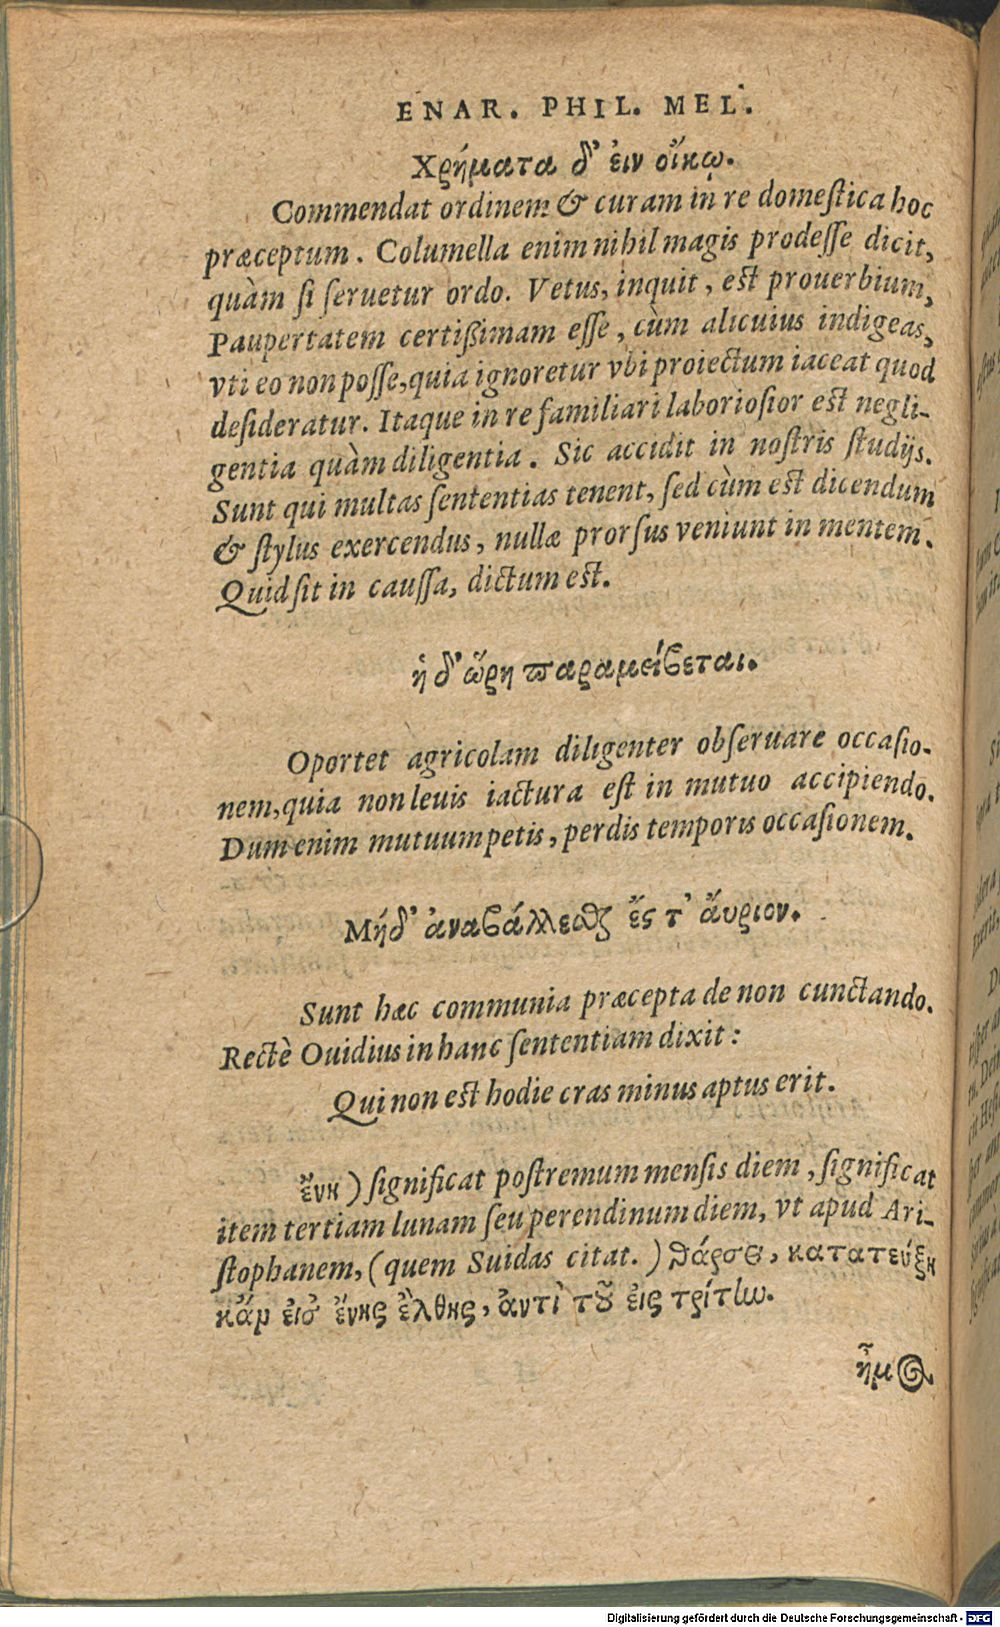 ENAR. PHIL. MEL.
Χρήματα δ' ἐιν οἴκῳ.
Commendat ordinem & curam in re domestica hoc
præceptum. Columella enim nihil magis prodesse dicit,
quàm si seruetur ordo. Vetus, inquit, est prouerbium,
Paupertatem certißimam esse, cùm alicuius indigeas,
vti eo non posse, quia ignoretur vbi proiectum iaceat quod
desideratur. Itaque in re familiari laboriosior est negli-
gentia quàm diligentia. Sic accidit in nostris studijs.
Sunt qui multas sententias tenent, sed cùm est dicendum
& stylus exercendus, nullæ prorsus veniunt in mentem.
Quid sit in caussa, dictum est.
ἡ δ' ὥρη παραμείβεται.
Oportet agricolam diligenter obseruare occasio-
nem, quia non leuis iactura est in mutuo accipiendo.
Dum enim mutuum petis, perdis temporis occasionem.
Μήδ' ἀναβάλλεσθαι ἔς τ' ἄυριον.
Sunt hæc communia præcepta de non cunctando.
Rectè Ouidius in hanc sententiam dixit:
Qui non est hodie cras minus aptus erit.
ἔνη) significat postremum mensis diem, significat
item tertiam lunam seu perendinum diem, vt apud Ari-
stophanem, (quem Suidas citat.) θάρσει, κατατεύξη
κἄμ ἐισ ἔνης ἔλθης, ἀντὶ τοῦ ἐις τρίτην.
ἦμος
Digitalisierung gefördert durch die Deutsche Forschungsgemeinschaft - DFG